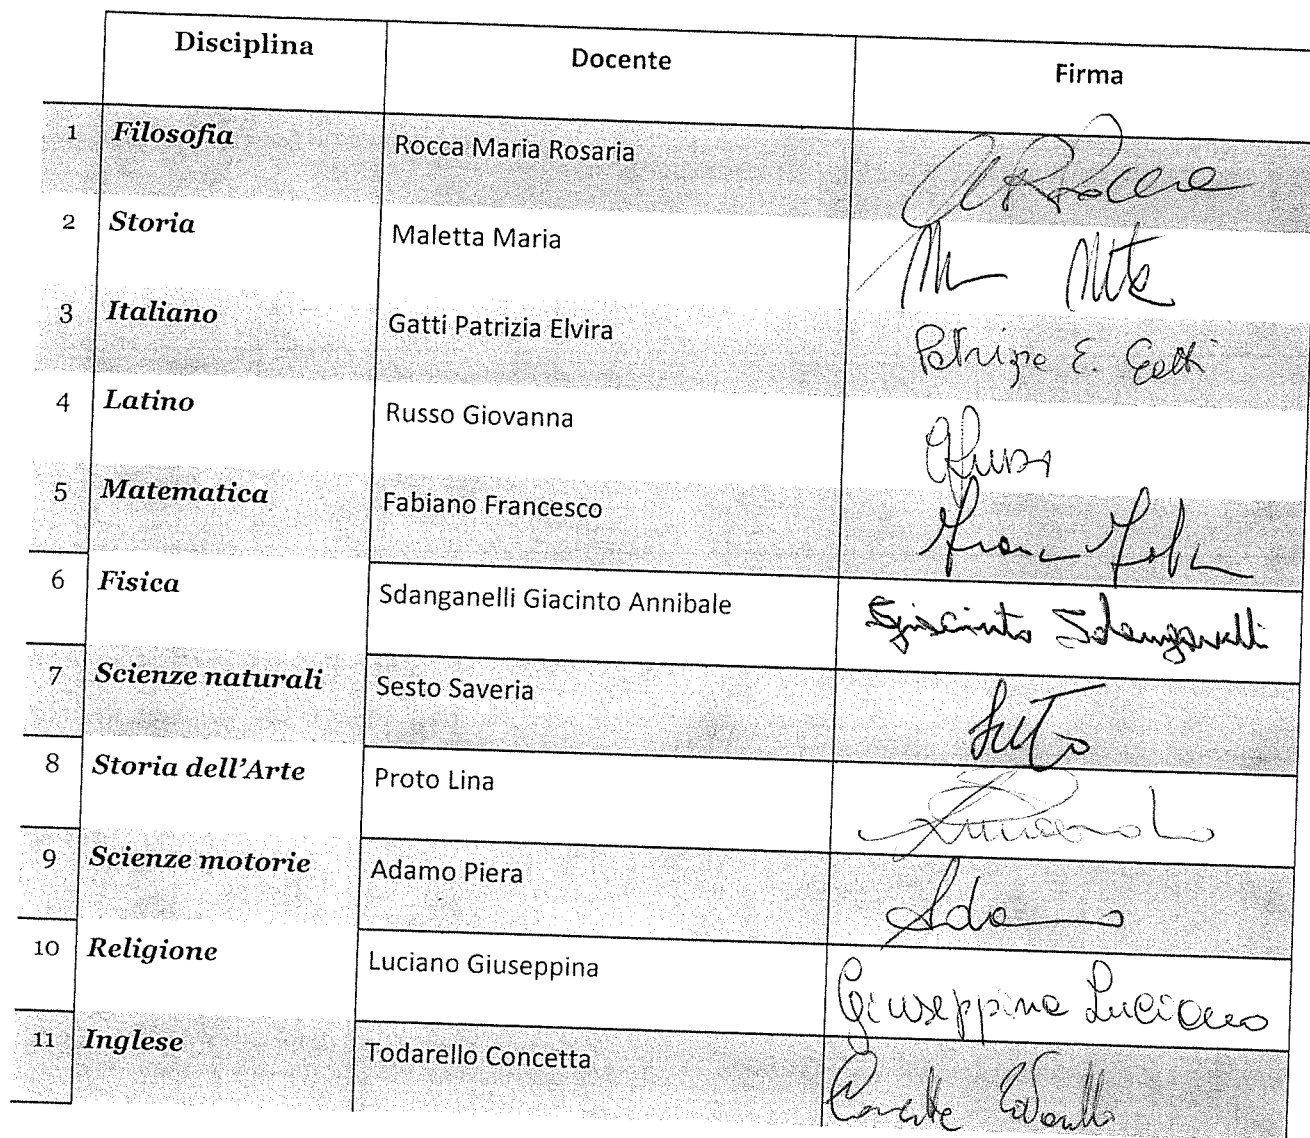 Disciplina Docente Firma
1 Filosofia Rocca Maria Rosaria
2 Storia Maletta Maria
3 Italiano Gatti Patrizia Elvira Patrizia E. Gatti
4 Latino Russo Giovanna
5 Matematica Fabiano Francesco
6 Fisica Sdanganelli Giacinto Annibale Giacinto Sdanganelli
7 Scienze naturali Sesto Saveria
8 Storia dell'Arte Proto Lina
9 Scienze motorie Adamo Piera
10 Religione Luciano Giuseppina Giuseppina Luciano
11 Inglese Todarello Concetta